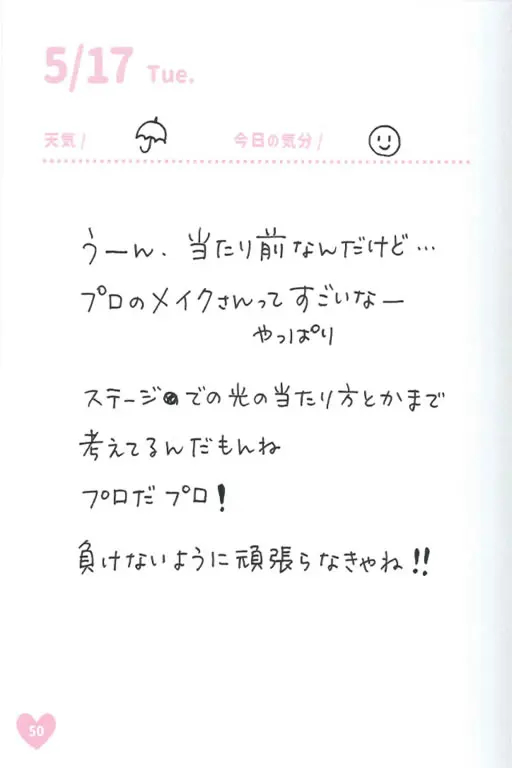 5/17 Tue.
天気/ 今日の気分/
うーん、当たり前なんだけど…
プロのメイクさんってすごいなー
やっぱり
ステージでの光の当たり方とかまで
考えてるんだもんね
プロだプロ!
負けないように頑張らなきゃね!!
50